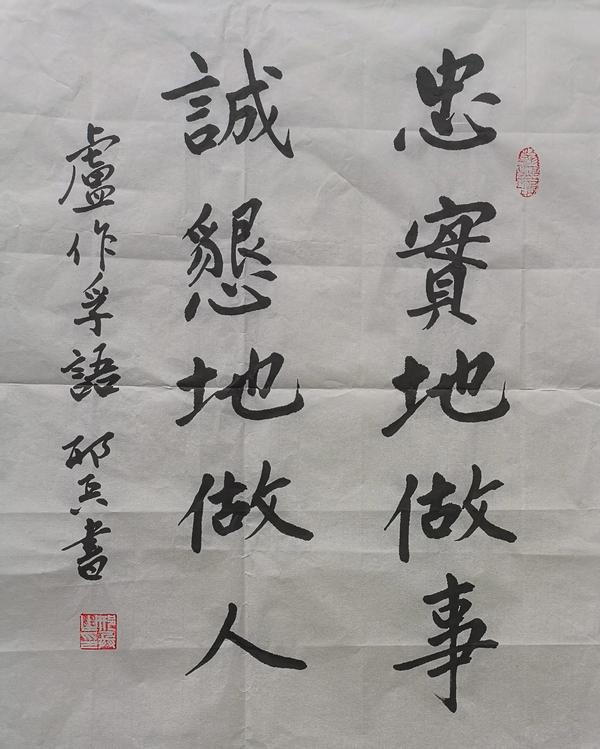 忠實地做事
誠懇地做人
盧作孚語 邢兵書